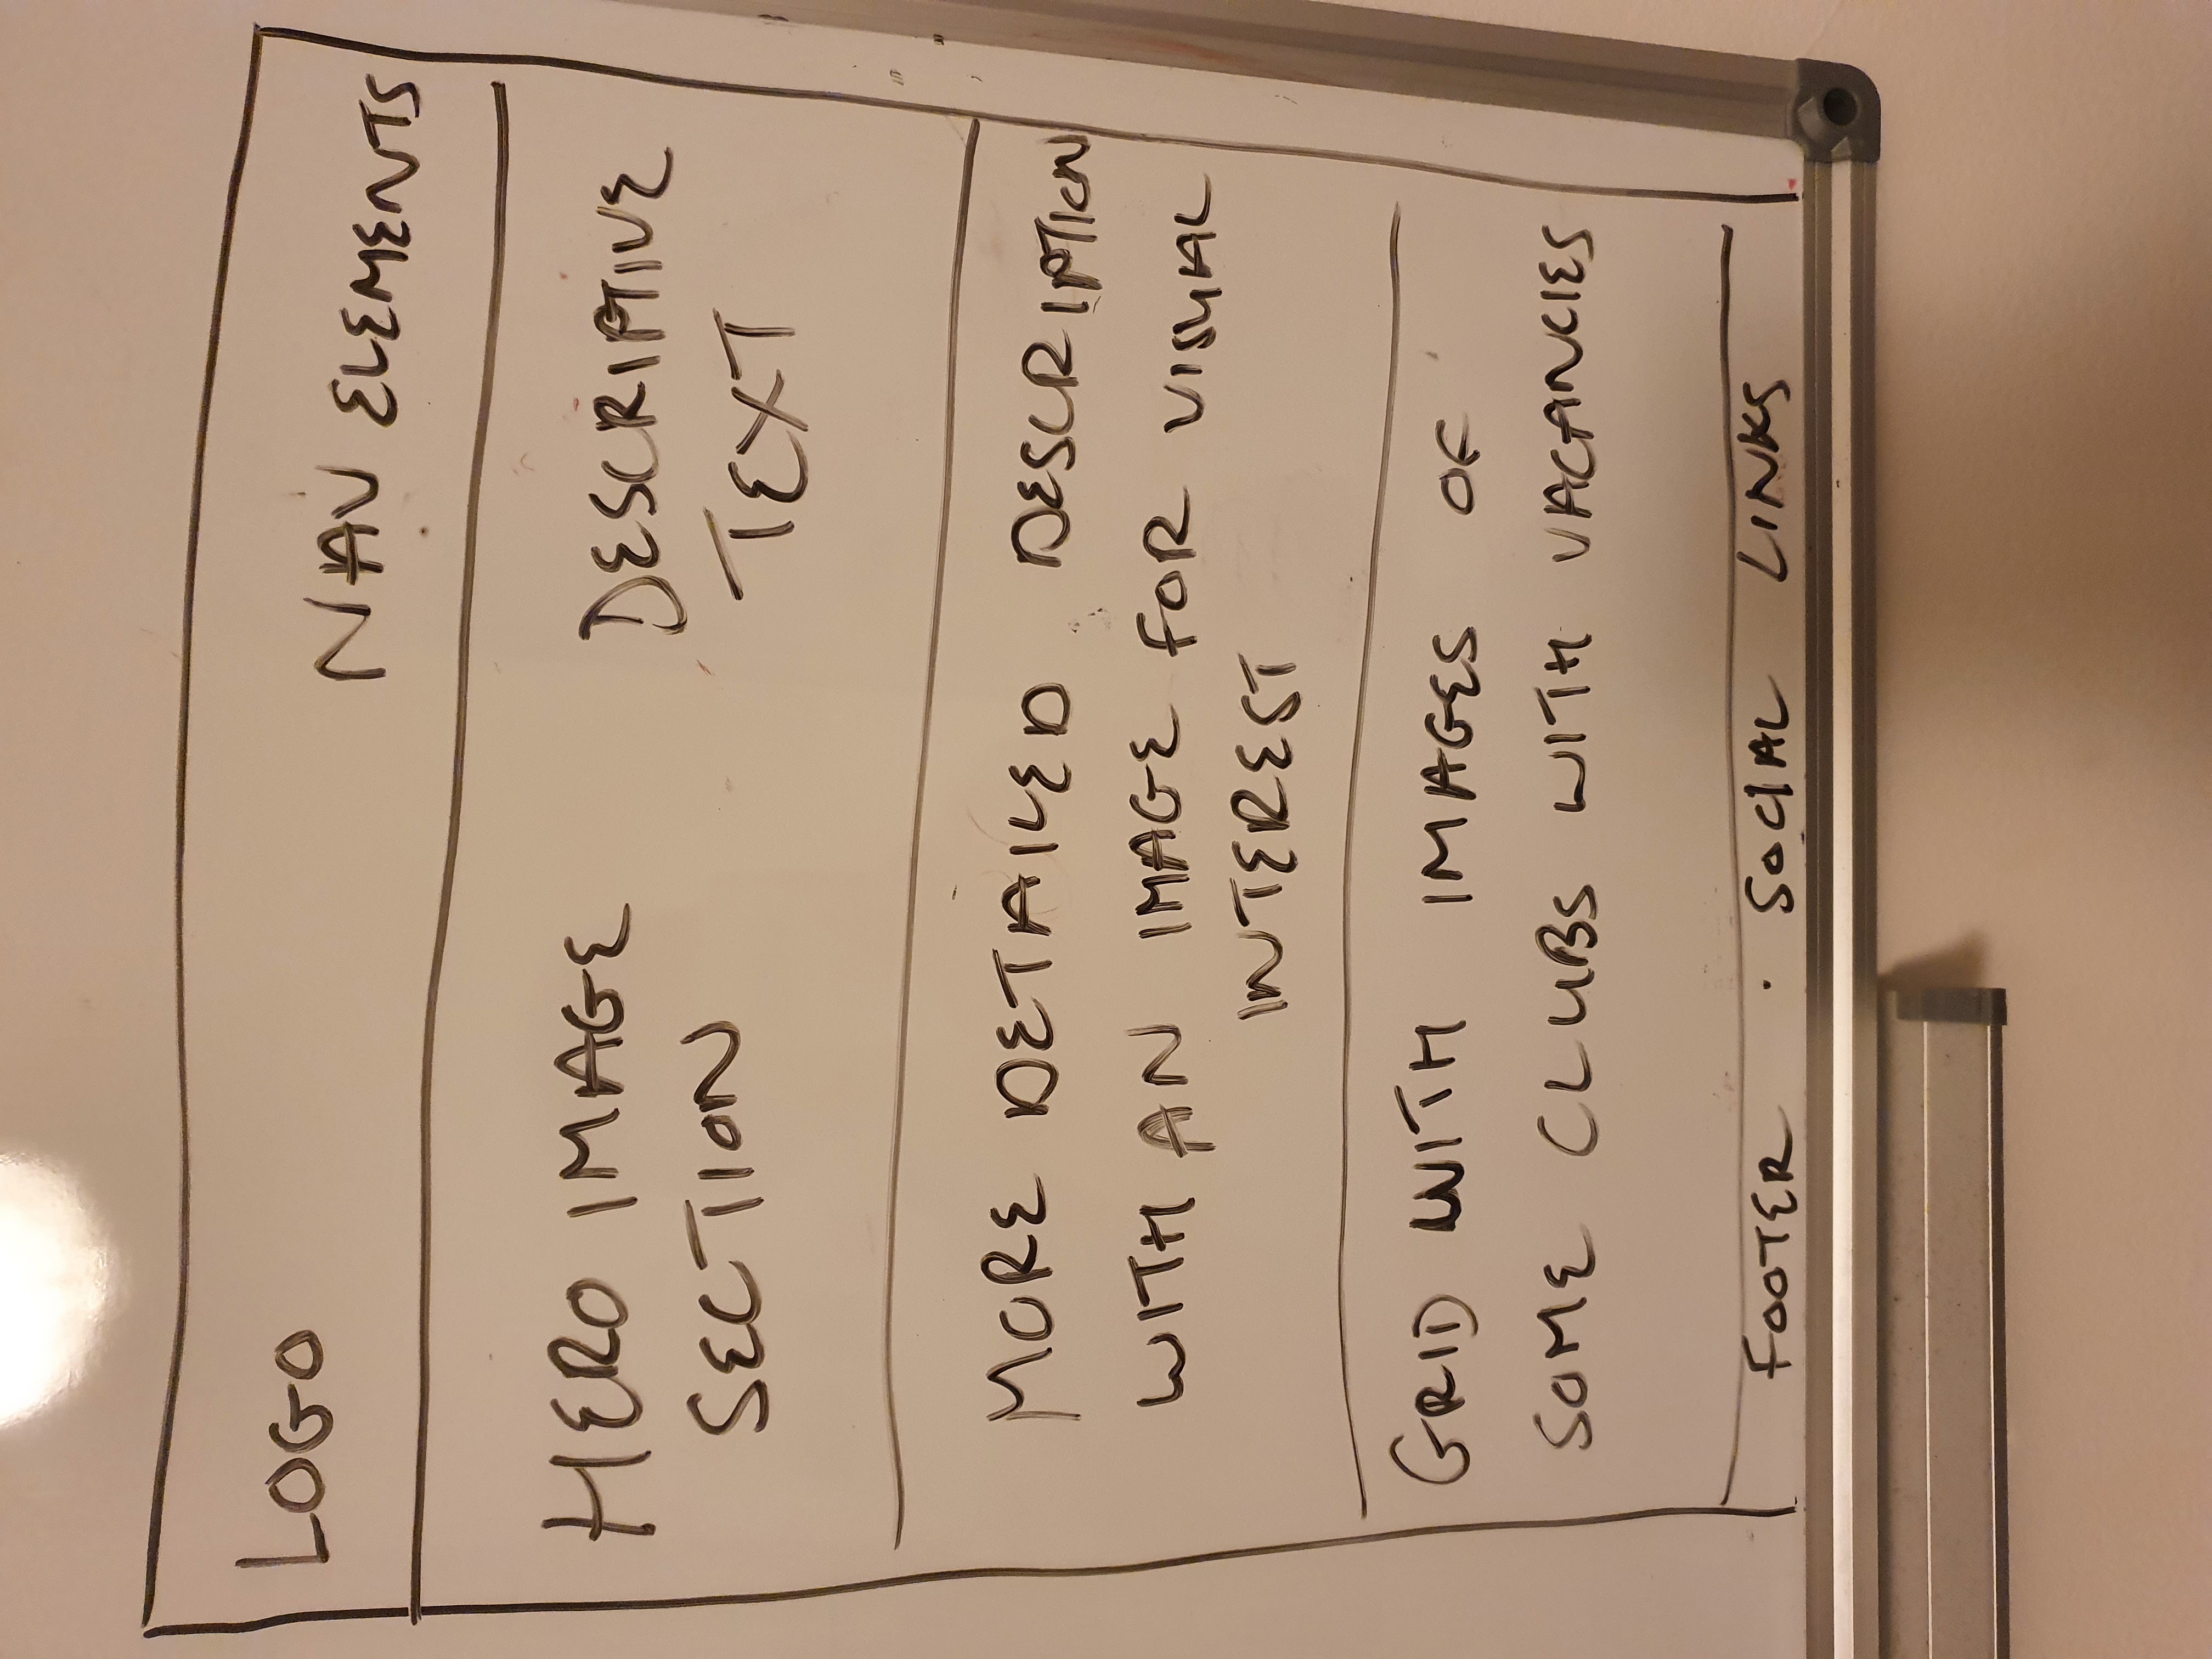 LOGO
NAV ELEMENTS
HERO IMAGE
SECTION
DESCRIPTIVE
TEXT
MORE DETAILED DESCRIPTION
WITH AN IMAGE FOR VISUAL
INTEREST
GRID WITH IMAGES OF
SOME CLUBS WITH VACANCIES
FOOTER · SOCIAL LINKS